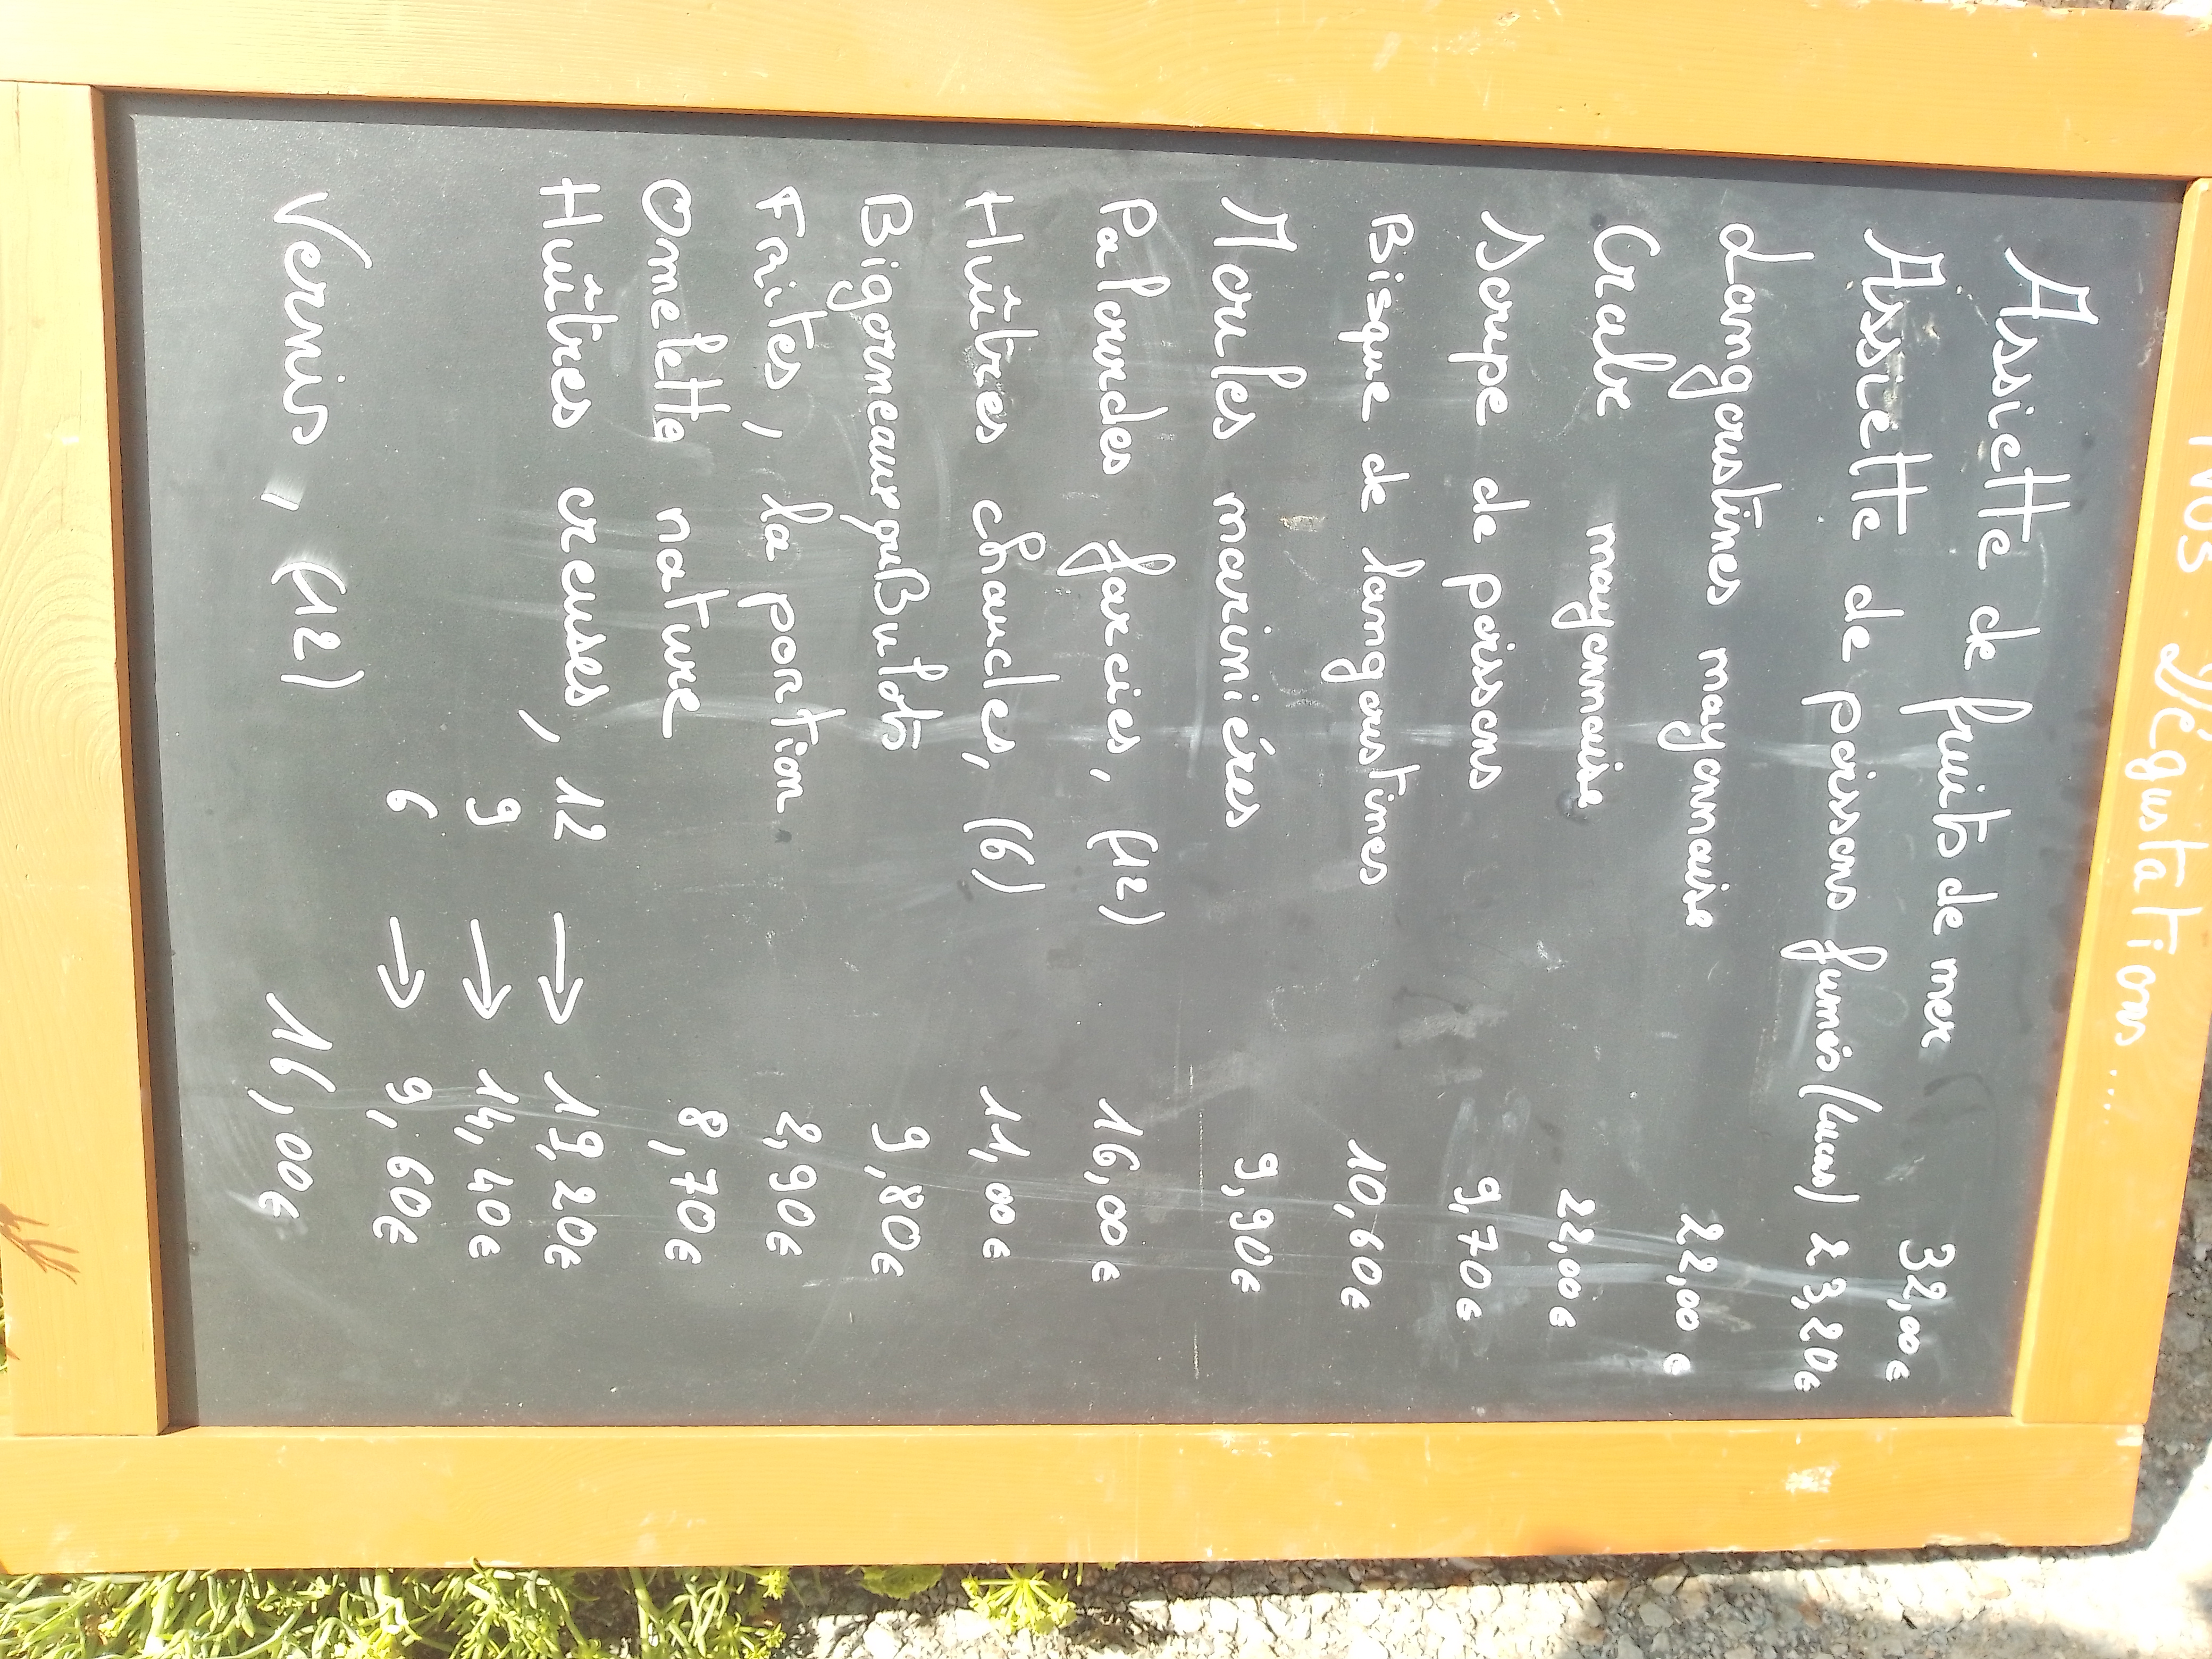 Nos Dégustations...
Assiette de fruits de mer 32,00€
Assiette de poissons fumés (Lucas) 23,20€
Langoustines mayonnaise 22,00€
Crabe mayonnaise 22,00€
Soupe de poissons 9,70€
Bisque de langoustines 10,60€
Moules marinières 9,90€
Palourdes farcies, (12) 16,00€
Huîtres chaudes, (6) 11,00€
Bigorneaux ou Bulots 9,80€
Frites, la portion 2,90€
Omelette nature 8,70€
Huîtres creuses, 12 → 19,20€
, 9 → 14,40€
6 → 9,60€
Vernis, (12) 16,00€